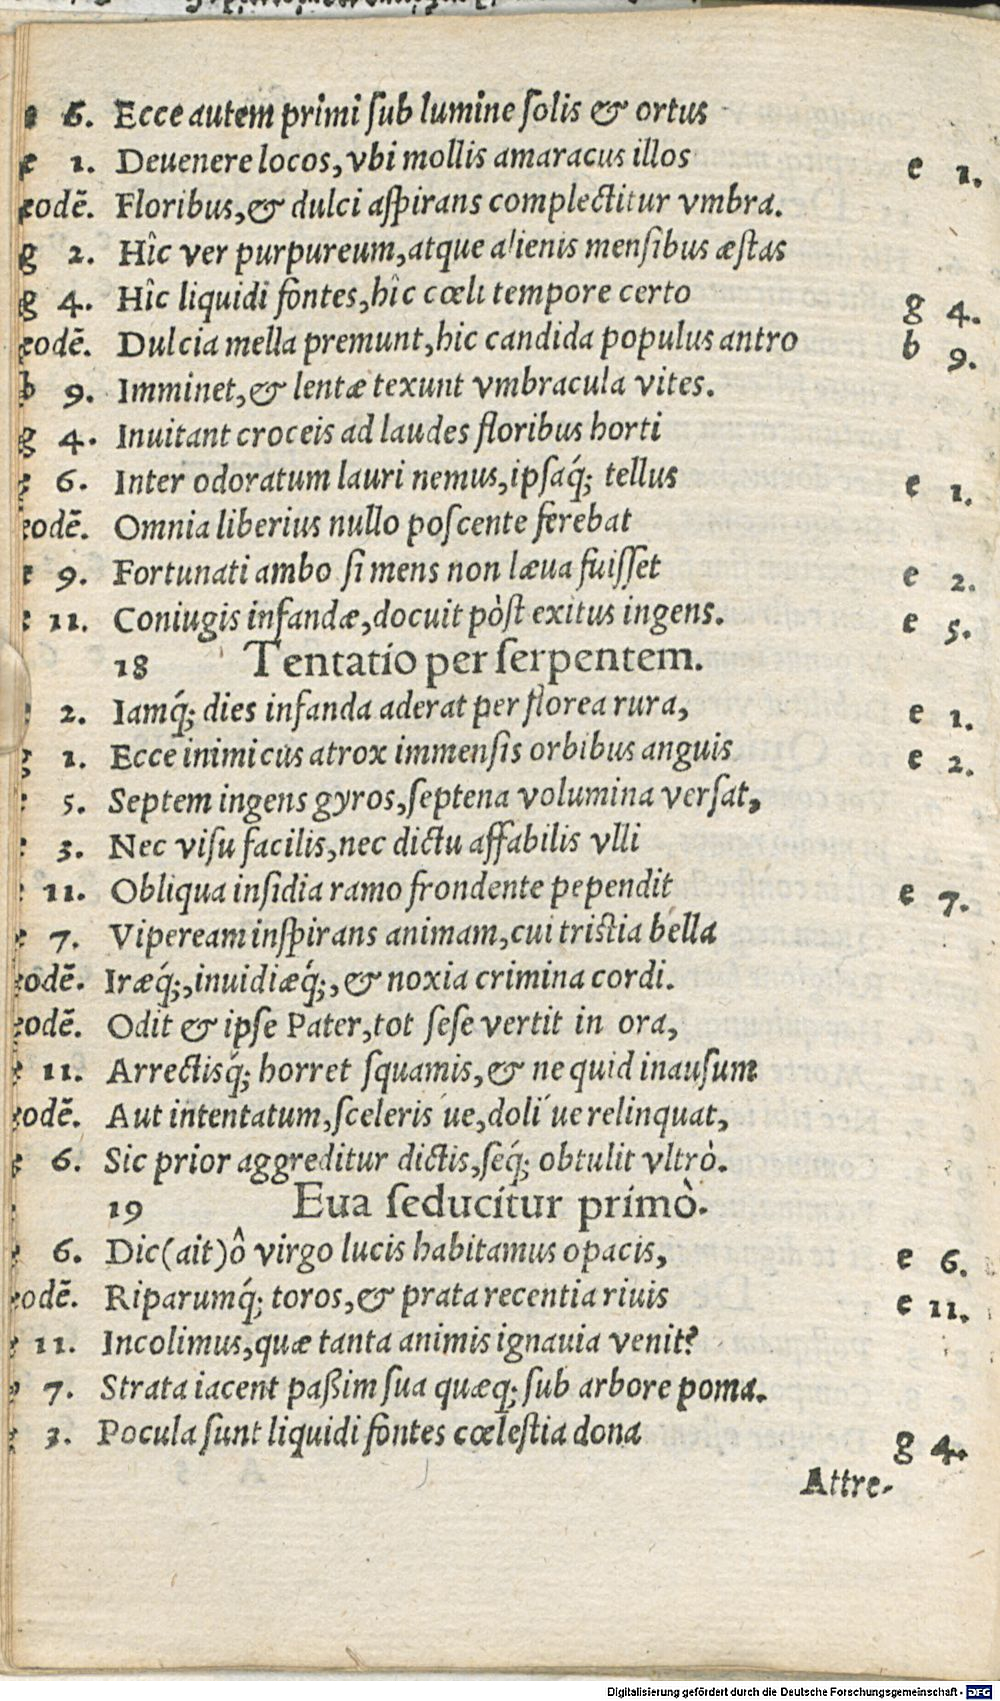 6. Ecce autem primi ſub lumine ſolis & ortus
e 1. Deuenere locos, vbi mollis amaracus illos e 1.
eodē. Floribus, & dulci aſpirans complectitur vmbra.
g 2. Hîc ver purpureum, atque alienis menſibus æſtas
g 4. Hîc liquidi fontes, hîc cœli tempore certo g 4.
eodē. Dulcia mella premunt, hic candida populus antro b 9.
b 9. Imminet, & lentæ texunt vmbracula vites.
g 4. Inuitant croceis ad laudes floribus horti
6. Inter odoratum lauri nemus, ipſaq́; tellus e 1.
eodē. Omnia liberius nullo poſcente ferebat
9. Fortunati ambo ſi mens non læua fuiſſet e 2.
11. Coniugis infandæ, docuit pòſt exitus ingens. e 5.
18 Tentatio per ſerpentem.
2. Iamq́; dies infanda aderat per florea rura, e 1.
g 1. Ecce inimicus atrox immenſis orbibus anguis e 2.
5. Septem ingens gyros, ſeptena volumina verſat,
3. Nec viſu facilis, nec dictu affabilis vlli
11. Obliqua inſidia ramo frondente pependit e 7.
7. Vipeream inſpirans animam, cui triſtia bella
eodē. Iræq́;, inuidiæq́;, & noxia crimina cordi.
eodē. Odit & ipſe Pater, tot ſeſe vertit in ora,
11. Arrectisq́; horret ſquamis, & ne quid inauſum
eodē. Aut intentatum, ſceleris ́ue, doli ́ue relinquat,
6. Sic prior aggreditur dictis, ſeq́; obtulit vltrò.
19 Eua ſeducitur primò.
6. Dic (ait) ô virgo lucis habitamus opacis, e 6.
eodē. Riparumq́; toros, & prata recentia riuis e 11.
11. Incolimus, quæ tanta animis ignauia venit?
7. Strata iacent paßim ſua quæq; ſub arbore poma.
3. Pocula ſunt liquidi fontes cœleſtia dona g 4.
Attre-
Digitalisierung gefördert durch die Deutsche Forschungsgemeinschaft - DFG